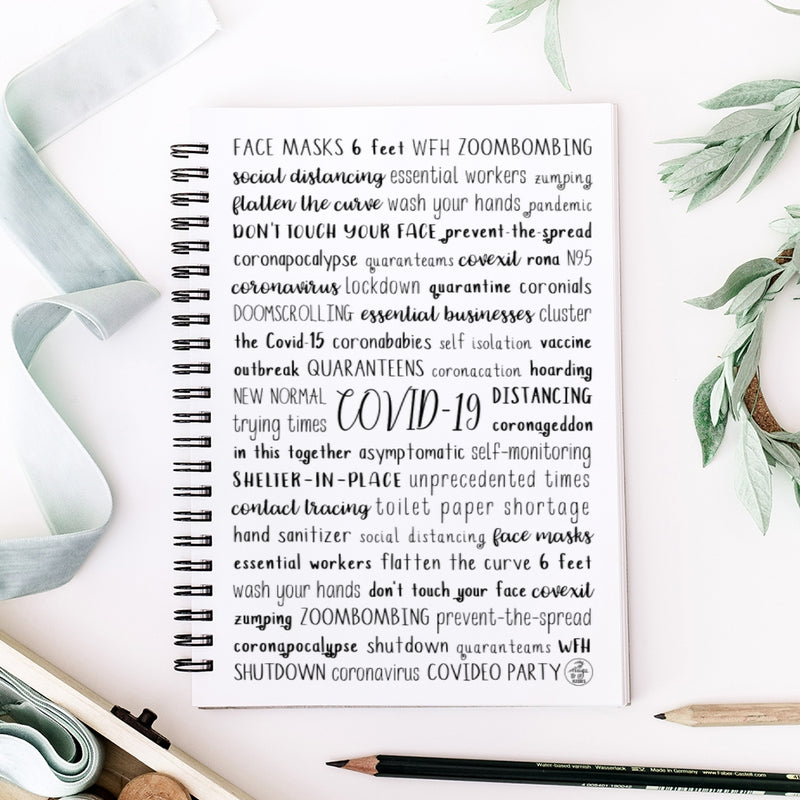 FACE MASKS 6 feet WFH ZOOMBOMBING
social distancing essential workers zumping
flatten the curve wash your hands pandemic
DON'T TOUCH YOUR FACE prevent-the-spread
coronapocalypse quaranteams covexit rona N95
coronavirus lockdown quarantine coronials
DOOMSCROLLING essential businesses cluster
the Covid-15 coronababies self isolation vaccine
outbreak QUARANTEENS coronacation hoarding
NEW NORMAL COVID-19 DISTANCING
trying times coronageddon
in this together asymptomatic self-monitoring
SHELTER-IN-PLACE unprecedented times
contact tracing toilet paper shortage
hand sanitizer social distancing face masks
essential workers flatten the curve 6 feet
wash your hands don't touch your face covexit
zumping ZOOMBOMBING prevent-the-spread
coronapocalypse shutdown quaranteams WFH
SHUTDOWN coronavirus COVIDEO PARTY
Water-based varnish Wasserlack Made in Germany www.Faber-Castell.com